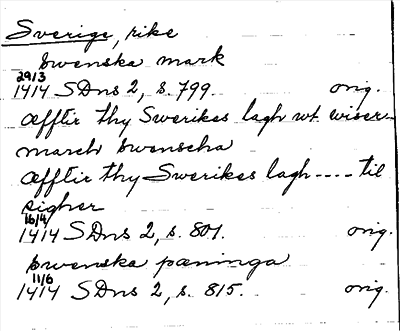 Sverige, rike
swenska mark
29/3
1414 SDns 2, s. 799. orig.
æfftir thy Swerikes lagh wt wiser
march swenscha
æfftir thy Swerikes lagh .... til
sigher
16/4
1414 SDns 2, s. 801. orig.
swenska pæninga
11/6
1414 SDns 2, s. 815. orig.